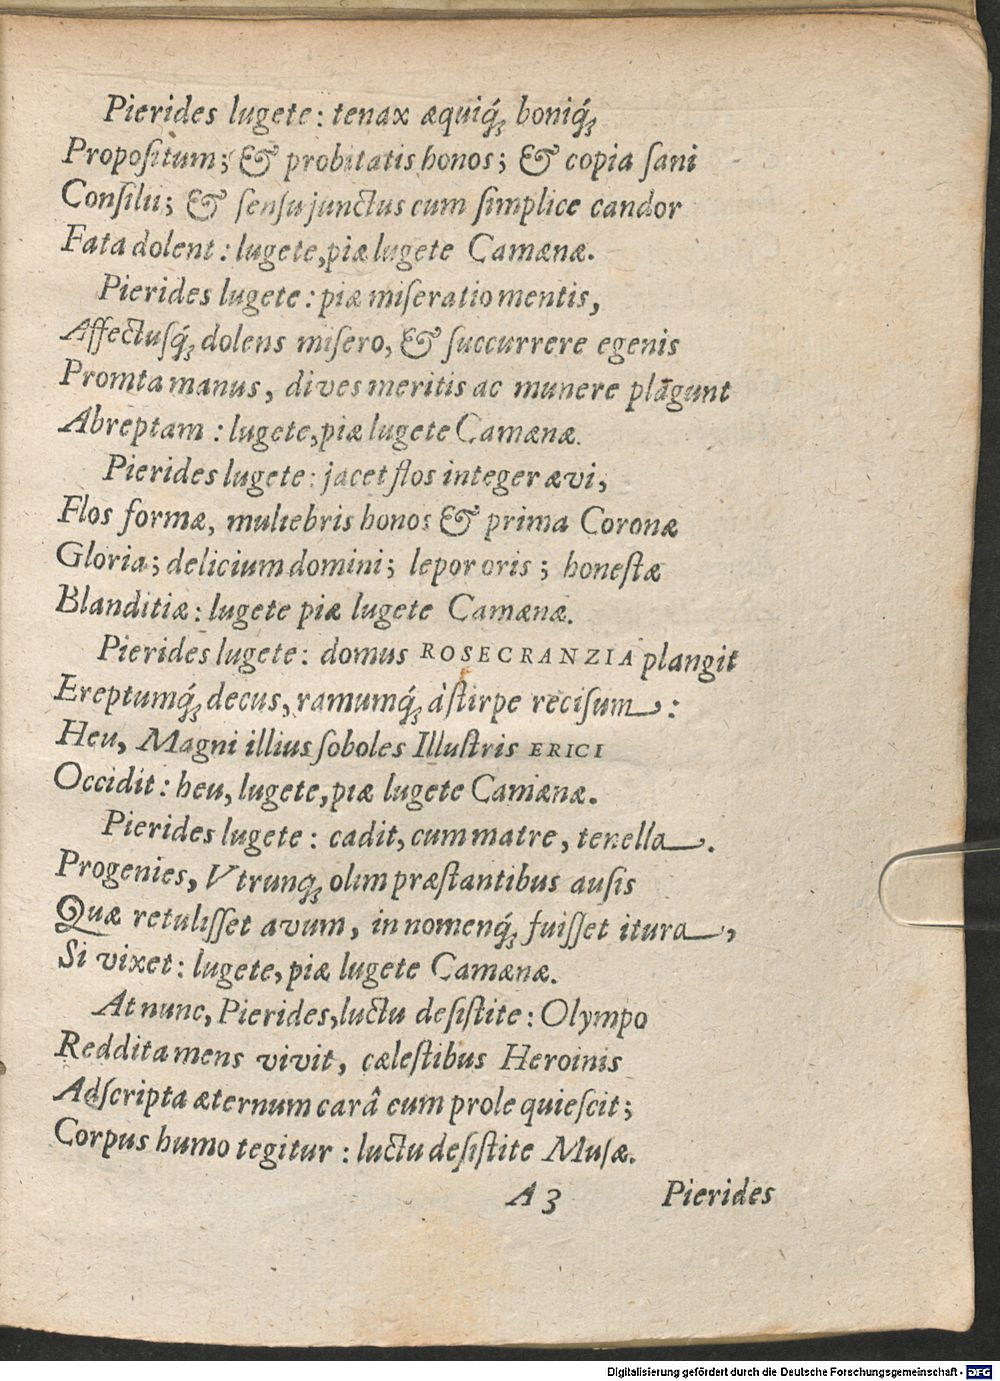 Pierides lugete: tenax æquiq́; boniq́;
Propoſitum; & probitatis honos; & copia ſani
Conſilii; & ſenſu junctus cum ſimplice candor
Fata dolent: lugete, piæ lugete Camænæ.
Pierides lugete: piæ miſeratio mentis,
Affectuſq́; dolens miſero, & ſuccurrere egenis
Promta manus, dives meritis ac munere plāgunt
Abreptam: lugete, piæ lugete Camænæ.
Pierides lugete: jacet flos integer ævi,
Flos formæ, muliebris honos & prima Coronæ
Gloria; delicium domini; lepor oris; honeſtæ
Blanditiæ: lugete piæ lugete Camænæ.
Pierides lugete: domus ROSECRANZIA plangit
Ereptumq́; decus, ramumq́; à ſtirpe reciſum:
Heu, Magni illius ſoboles Illuſtris ERICI
Occidit: heu, lugete, piæ lugete Camænæ.
Pierides lugete: cadit, cum matre, tenella.
Progenies, Vtrunq; olim præſtantibus auſis
Quæ retuliſſet avum, in nomenq́; fuiſſet itura,
Si vixet: lugete, piæ lugete Camænæ.
At nunc, Pierides, luctu deſiſtite: Olympo
Reddita mens vivit, cæleſtibus Heroinis
Adſcripta æternum carâ cum prole quieſcit;
Corpus humo tegitur: luctu deſiſtite Muſæ.
A 3 Pierides
Digitalisierung gefördert durch die Deutsche Forschungsgemeinschaft - DFG